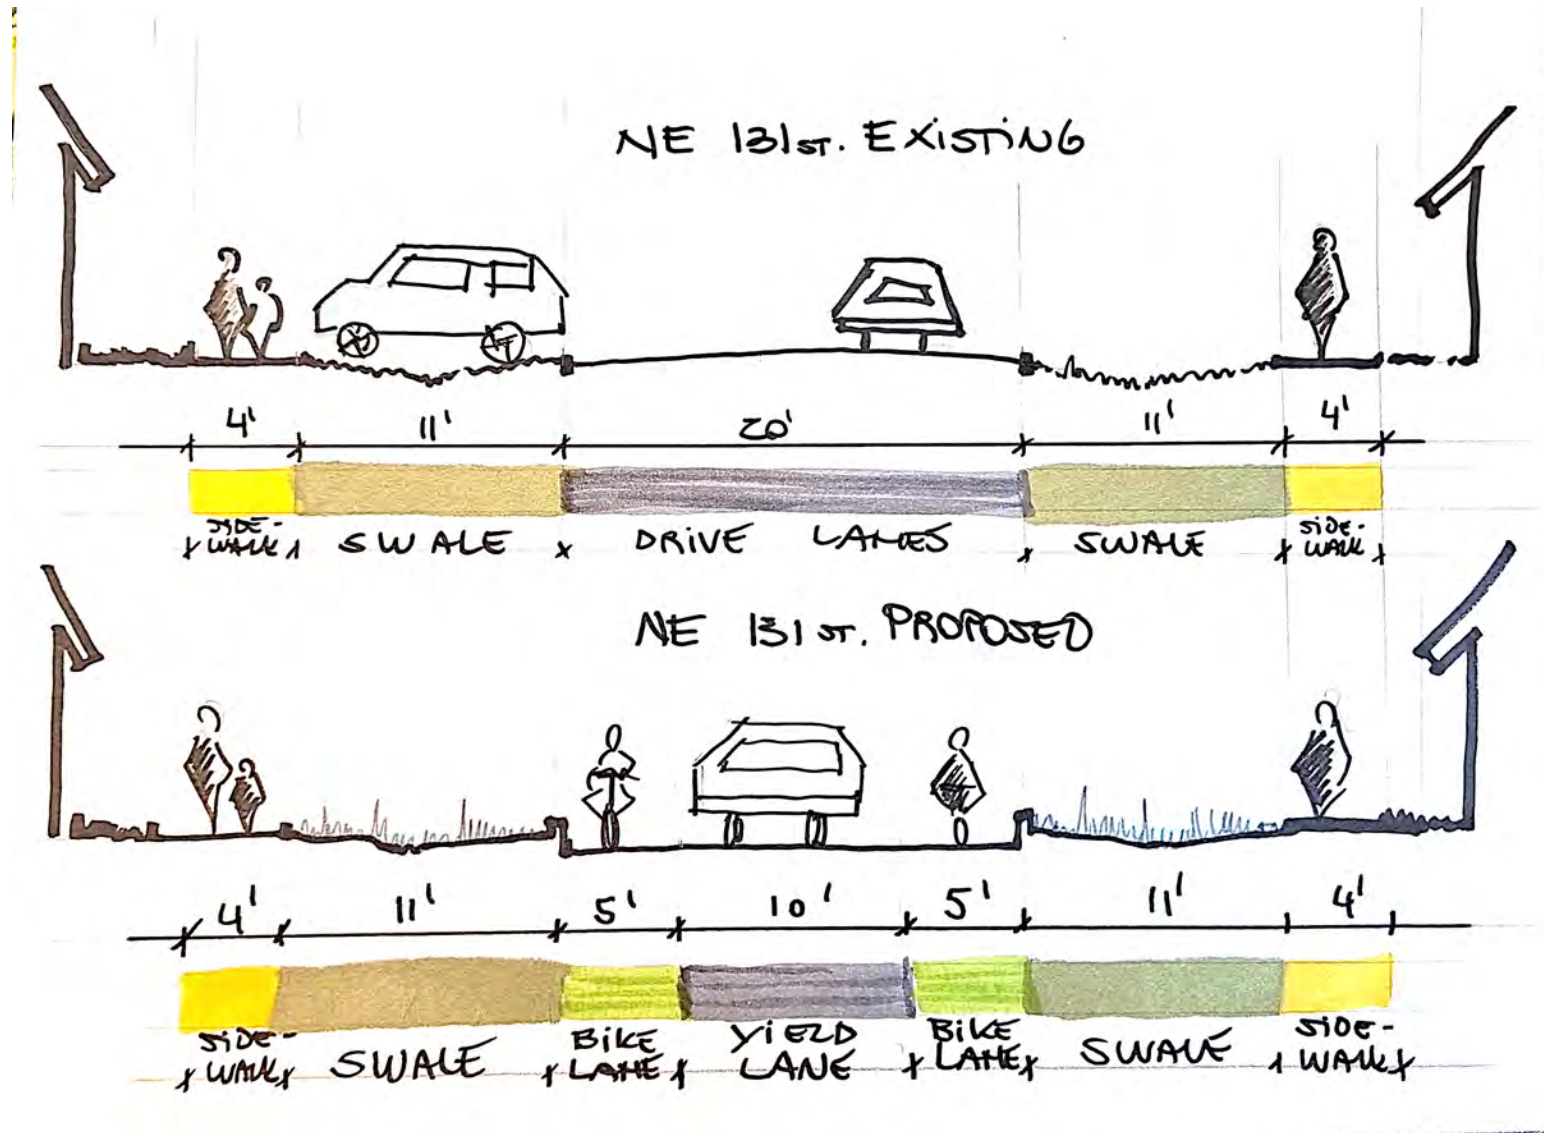 NE 131ST. EXISTING
4' 11' 20' 11' 4'
SIDE-
WALK
SWALE
DRIVE LANES
SWALE
SIDE-
WALK
NE 131ST. PROPOSED
4' 11' 5' 10' 5' 11' 4'
SIDE-
WALK
SWALE
BIKE
LANE
YIELD
LANE
BIKE
LANE
SWALE
SIDE-
WALK